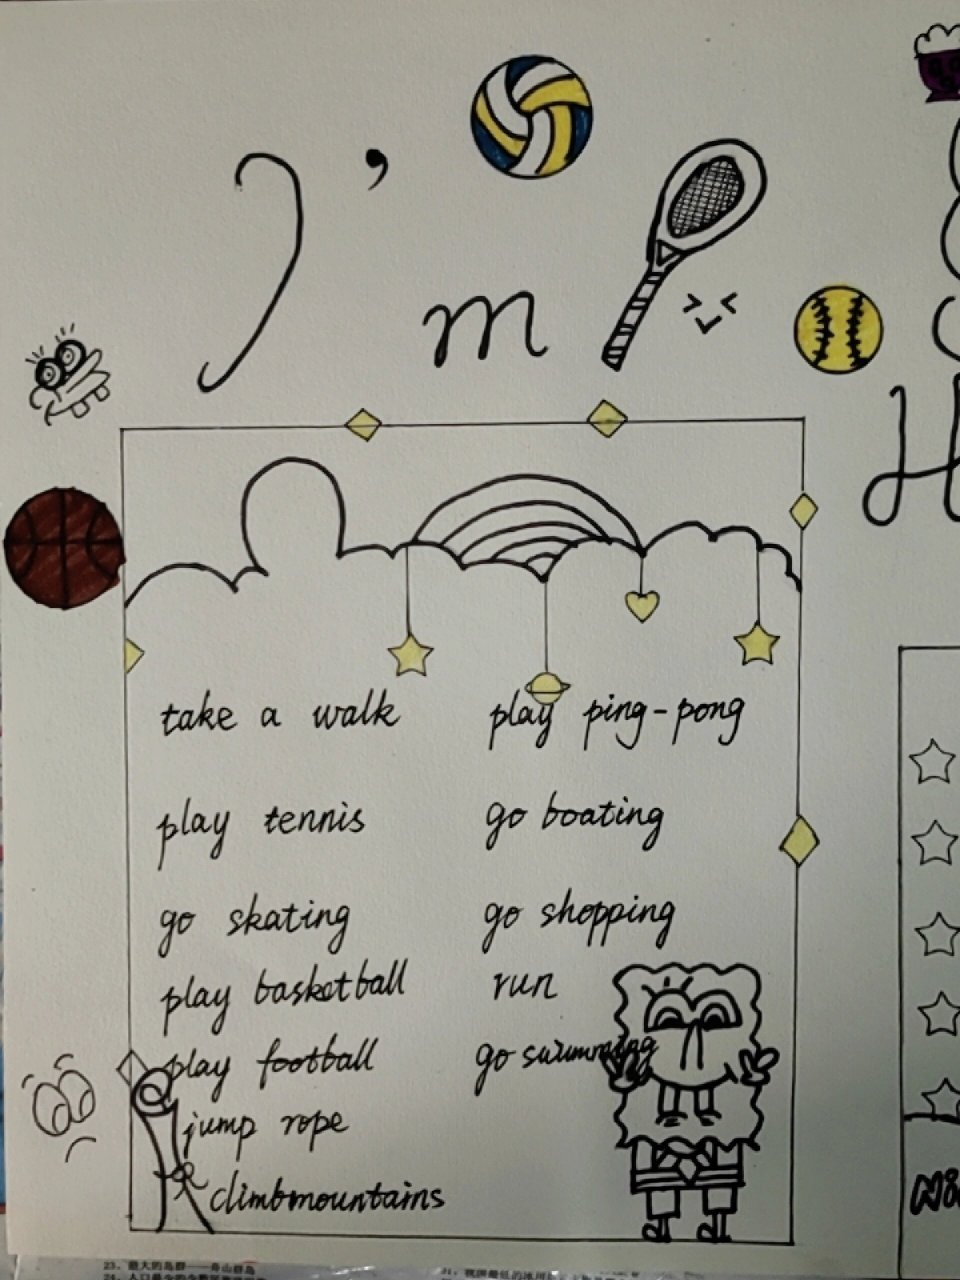 I'm
take a walk
play ping-pong
play tennis
go boating
go skating
go shopping
play basketball
run
play football
go swimming
jump rope
climbmountains
23. 最大的岛群——舟山群岛